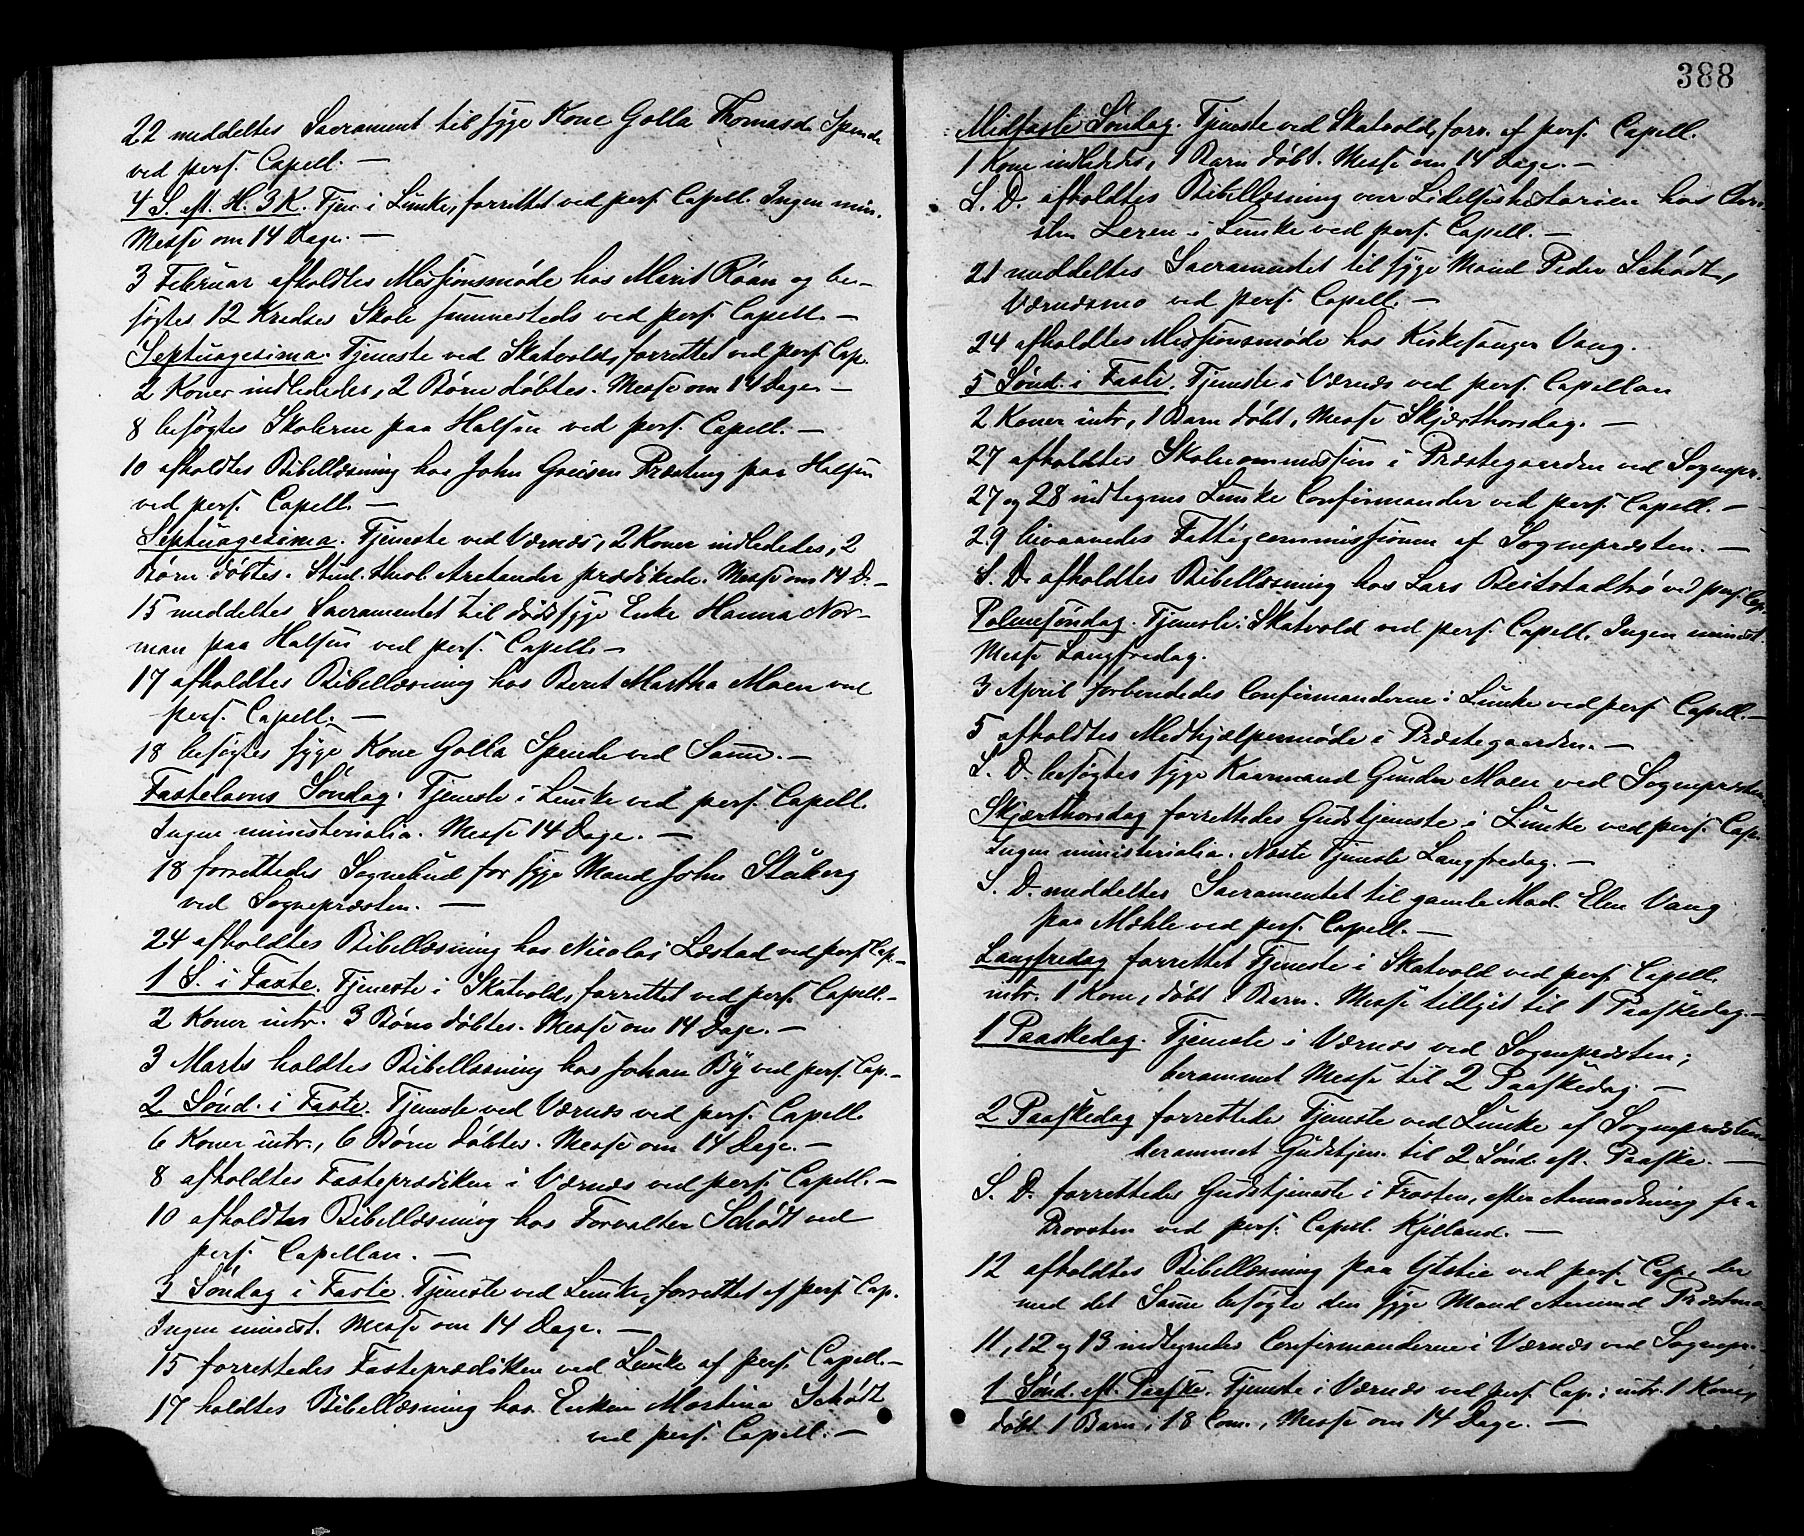 22 meddeltes Sacrament til syge Kone Golla Thomasd. Spende
ved pers. Capell. —
4 S. eft. H. 3 K. Tjen. i Lunke, forrettet ved pers. Capell. Ingen min.
Messe om 14 Dage. —
3 Februar afholdtes Missionsmøde hos Marit Røan og be-
søgtes 12 Kredses Skole sammesteds ved pers. Capell. —
Septuagesima. Tjeneste ved Skatvold, forrettet ved pers. Cap.
2 Koner indlededes, 2 Børn døbtes. Messe om 14 Dage —
8 besøgtes Skolerne paa Halsen ved pers. Capell. —
10 afholdtes Bibellæsning hos John Greisen Præsteng paa Halsen
ved pers. Capell. —
Septuagesima. Tjeneste ved Værnæs, 2 Koner indledetes, 2
Børn døbtes. Stud. theol. Aretander prædikede. Messe om 14 D. —
15 meddeltes Sacramentet til dødssyge Enke Hanna Nor-
man paa Halsen ved pers. Capell. —
17 afholdtes Bibellæsning hos Berit Martha Moen ved
pers. Capell. —
18 besøgtes syge Kone Golla Spende ved Samme. —
Fastelavns Søndag. Tjeneste i Lunke ved pers. Capell.
Ingen ministerialia. Messe 14 Dage. —
18 forrettedes Sognebud for syge Mand John Stuberg
ved Sognepræsten. —
24 afholdtes Bibellæsning hos Nicolai Læstad ved pers. Cap. —
1 S. i Faste. Tjeneste i Skatvold, forrettet ved pers. Capell. —
2 Koner intr. 3 Børn døbtes. Messe om 14 Dage. —
3 Marts holdtes Bibellæsning hos Johan By ved pers. Cap. —
2 Sønd. i Faste. Tjeneste ved Værnæs ved pers. Capell.
6 Koner intr., 6 Børn døbtes. Messe om 14 Dage. —
8 afholdtes Fasteprædiken i Værnæs ved pers. Capell. —
10 afholdtes Bibellæsning hos Forvalter Schødt ved
pers. Capellan. —
3 Søndag i Faste. Tjeneste ved Lunke, forrettet af pers. Cap.
Ingen minist. Messe om 14 Dage. —
15 forrettedes Fasteprædiken ved Lunke af pers. Capell. —
17 holdtes Bibellæsning hos Enken Martina Schødt
ved pers. Capell. —
388
Midfaste Søndag. Tjeneste ved Skatvold, forr. af pers. Capell.
1 Kone indlededes, 1 Barn døbt. Messe om 14 Dage. —
S. D. afholdtes Bibellæsning over Lidelseshistorien hos Chri-
sten Leren i Lunke ved pers. Capell. —
21 meddeltes Sacramentet til syge Mand Peder Schødt,
Værnæsmo ved pers. Capell. —
24 afholdtes Missionsmøde hos Kirkesanger Vang.
5 Sønd. i Faste. Tjeneste i Værnæs ved pers. Capellan
2 Koner intr., 1 Barn døbt, Messe Skjærthorsdag. —
27 afholdtes Skolecommission i Præstegaarden ved Sognepr.
27 og 28 indtegnes Lunke Confirmander ved pers. Capell. —
29 bivaanedes Fattigcommissionen af Sognepræsten. —
S. D. afholdtes Bibellæsning hos Lars Beitstadtrø ved pers. Cap.
Palmesøndag. Tjeneste i Skatvold ved pers. Capell. Ingen minist.
Messe Langfredag.
3 April forberededes Confirmanderne i Lunke ved pers. Capell. —
5 afholdtes Medhjælpermøde i Præstegaarden. —
S. D. besøgtes syge Kaarmand Gunder Moen ved Sognepræsten
Skjærthorsdag forrettedes Gudstjeneste i Lunke ved pers. Cap.
Ingen ministerialia. Næste Tjeneste Langfredag. —
S. D. meddeltes Sacramentet til gamle Mad. Elen Vang
paa Mæhle ved pers. Capell. —
Langfredag forrettet Tjeneste i Skatvold ved pers. Capell.
intr. 1 Kone, døbt 1 Barn. Messe tillyst til 1 Paaskedag. —
1 Paaskedag. Tjeneste i Værnæs ved Sognepræsten;
berammet Messe til 2 Paaskedag. —
2 Paaskedag forrettedes Tjeneste ved Lunke af Sognepræsten
berammet Gudstjen. til 2 Sønd. eft. Paaske. —
S. D. forrettedes Gudstjeneste i Frosten, efter Anmodning fra
Provsten ved pers. Capell. Kjelland. —
12 afholdtes Bibellæsning paa Ytstie ved pers. Cap. der
med det Samme besøgte den syge Mand Amund Præstmo
11, 12 og 13 indtegnedes Confirmanderne i Værnæs ved Sognepr.
1 Sønd. eft. Paaske. Tjeneste i Værnæs ved pers. Cap.; intr. 1 Kone,
døbt 1 Barn, 18 Com., Messe om 14 Dage. —